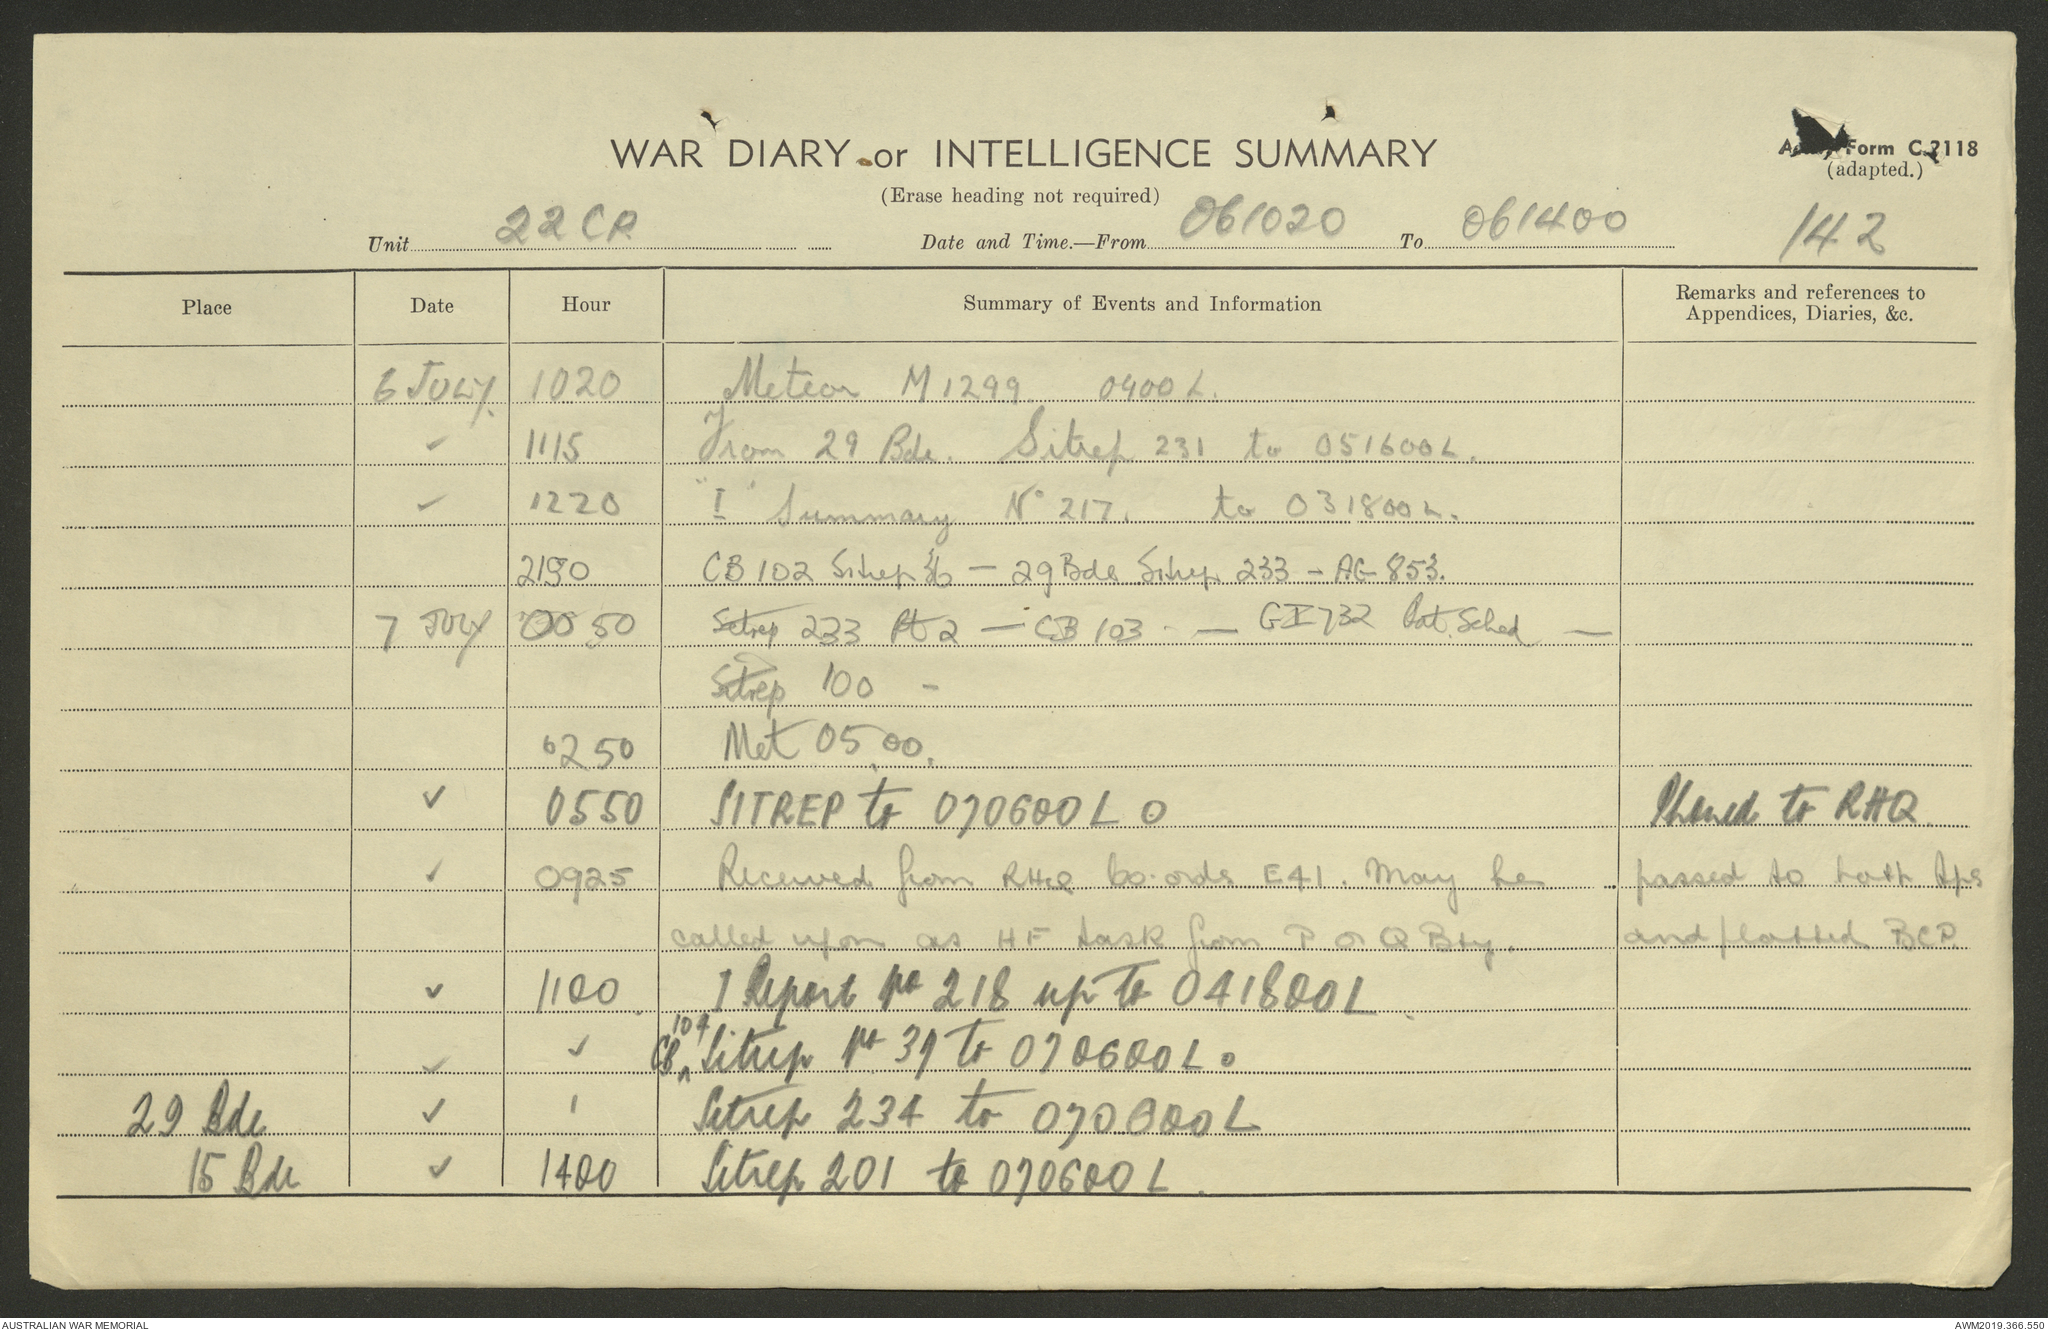 WAR DIARY or INTELLIGENCE SUMMARY
Form C.2118
(adapted.)
(Erase heading not required)
Unit 22 CR Date and Time.—From 061020 To 061400 142
Place Date Hour Summary of Events and Information Remarks and references to
Appendices, Diaries, &c.
6 JULY. 1020 Meteor M1299. 0400 L.
✓ 1115 From 29 Bde. Sitrep 231 to 051600L.
✓ 1220 "I" Summary No 217. to 031800L.
CB 102 Sitrep 36 — 29 Bde Sitrep 233 — AG 853.
7 JULY 0050 Sitrep 233 Pt 2 — CB 103 — Pat. Sched —
Sitrep 100 -
0250 Met 0500.
✓ 0550 SITREP to 070600L o Phoned to RHQ.
✓ 0925 Received from RHQ Co-ords E41. May be passed to both
called upon as HF task from P or Q Bty. and plotted BCP
✓ 1100 I Report No 218 up to 041800L.
✓ ✓ CB 104 Sitrep No 37 to 070600L o
29 Bde ✓ Sitrep 234 to 070600L
15 Bde ✓ 1400 Sitrep 201 to 070600L.
AUSTRALIAN WAR MEMORIAL AWM2019.366.550